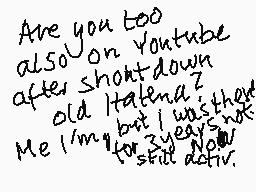 Are you too
also on Youtube
after shontdown
old Hatena?
Me I'm, but I was there
for 3 years not.
still Now activ.